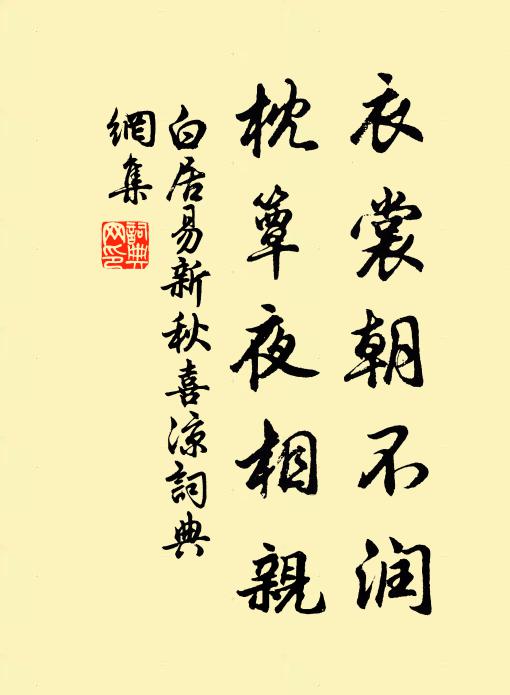 衣裳朝不润
枕簟夜相親
白居易新秋喜涼詞典
網集
詞典
网印